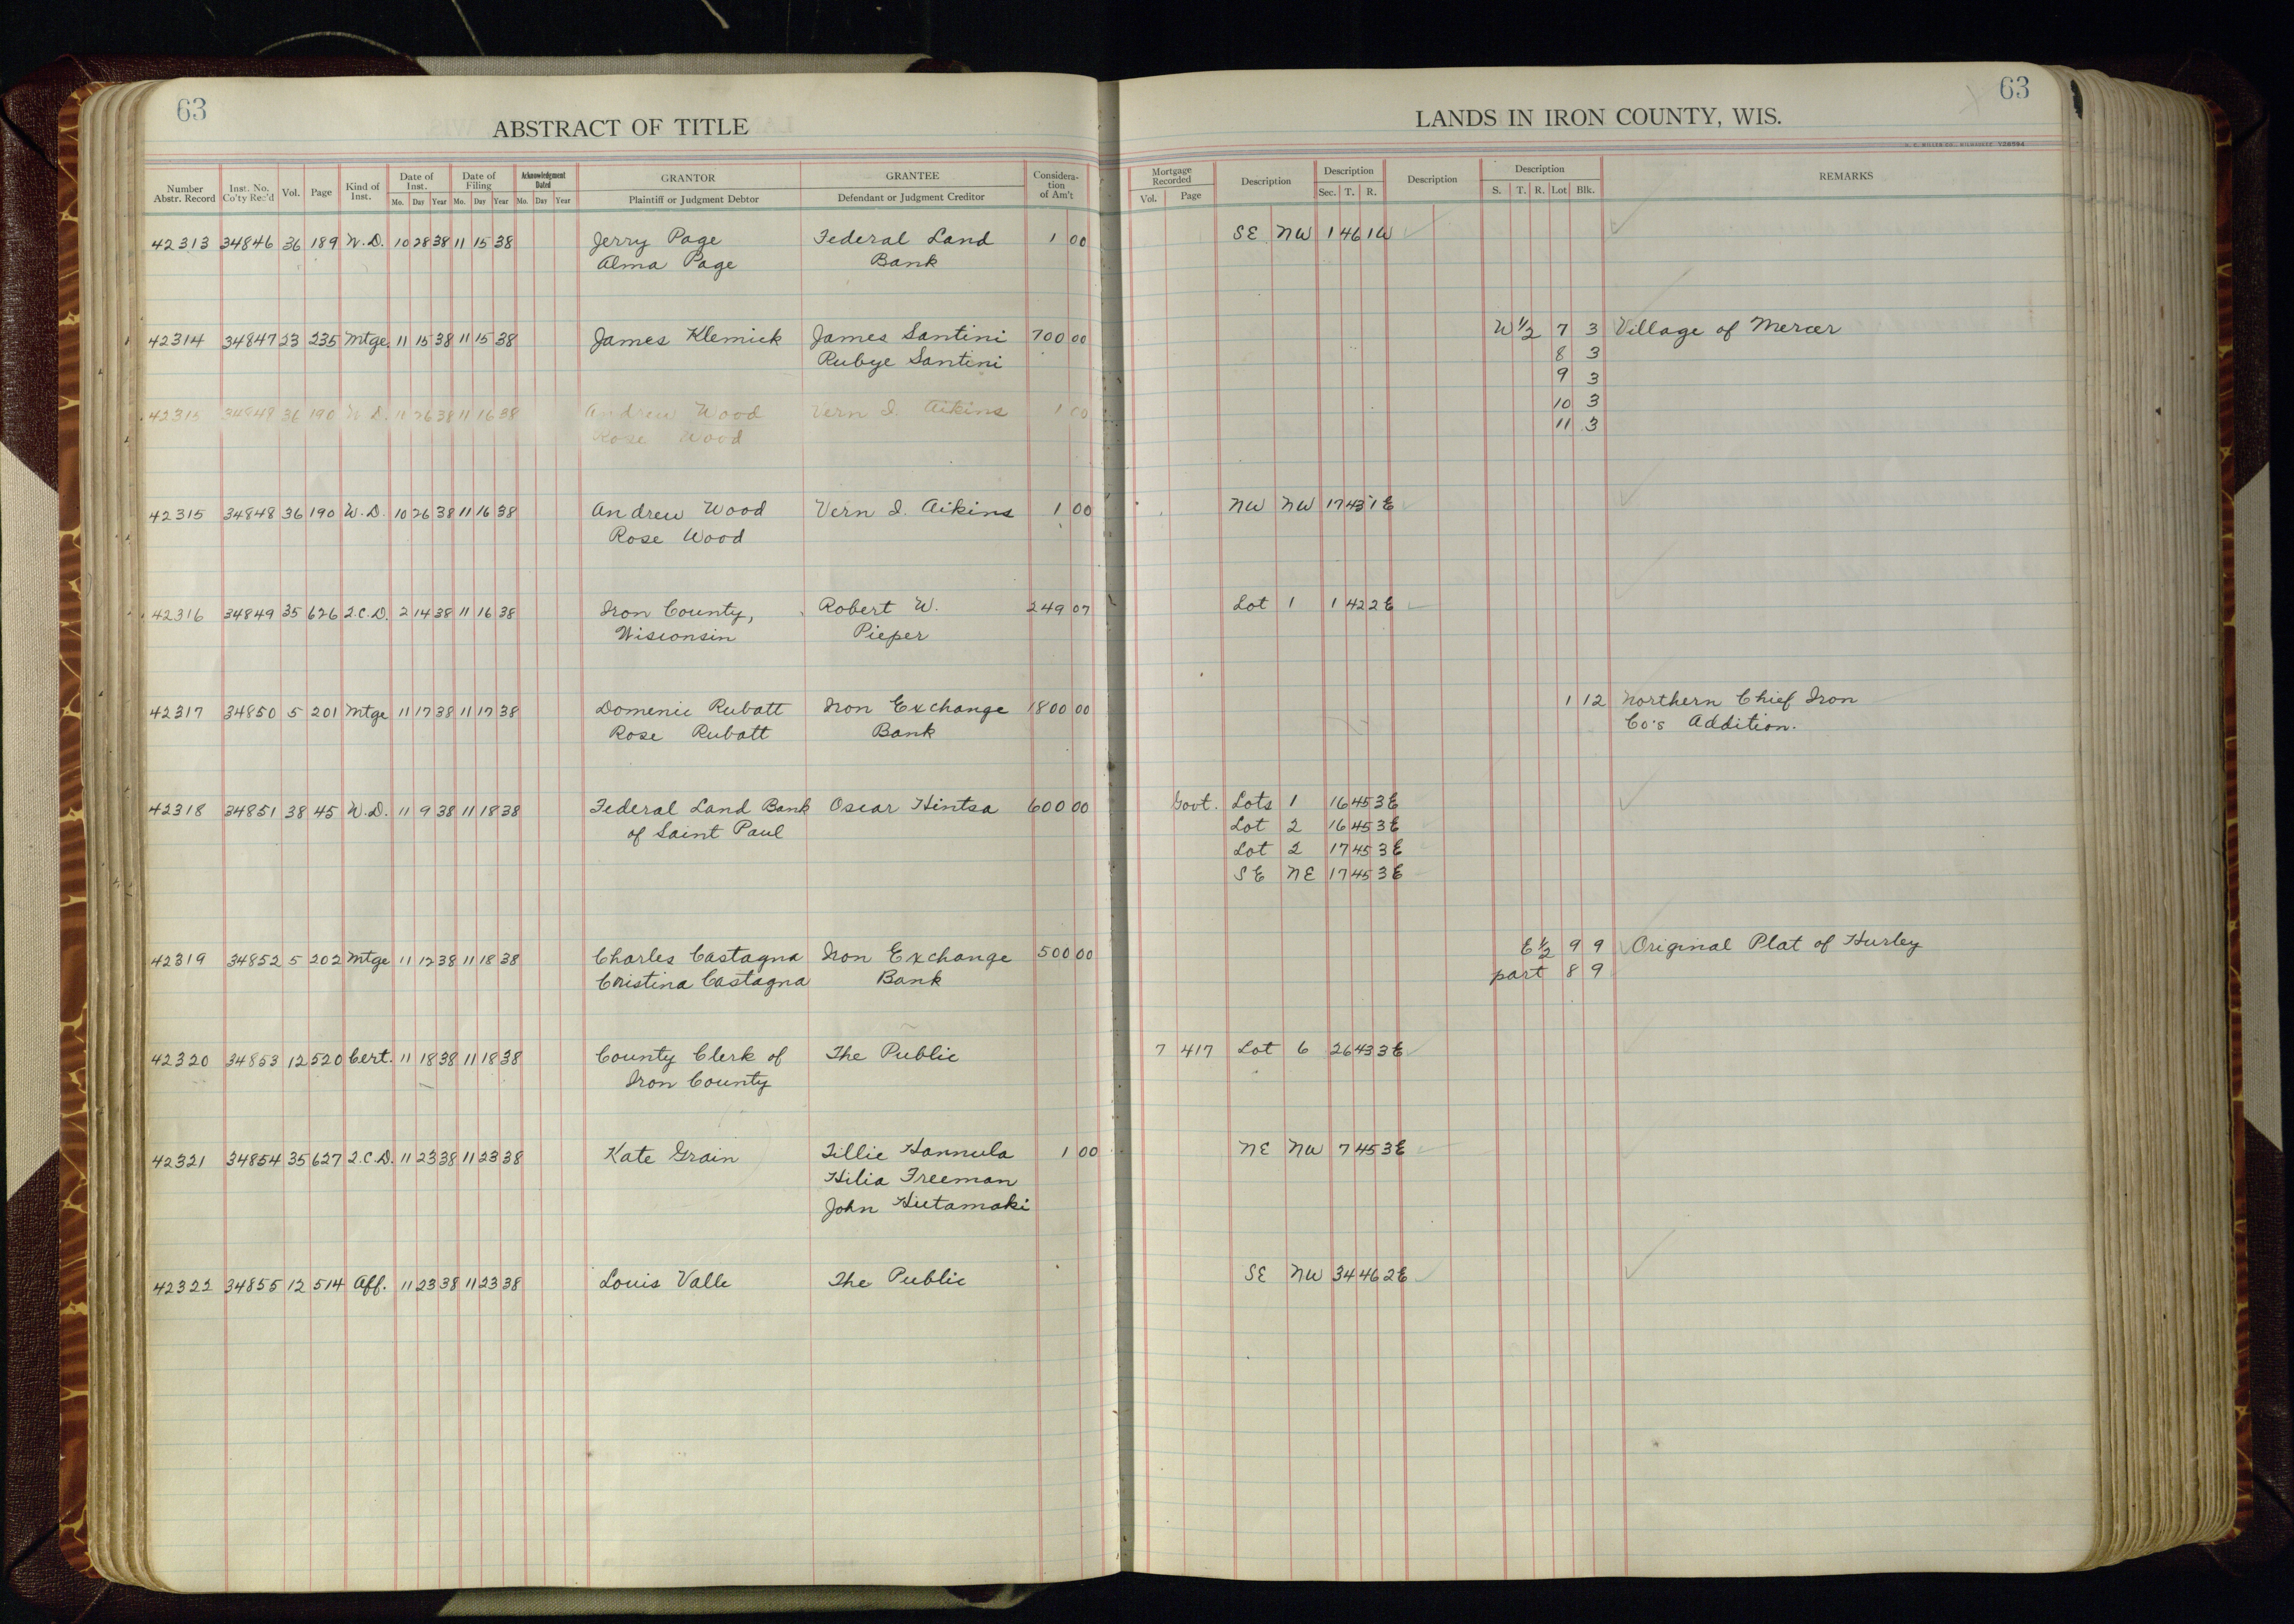 63
ABSTRACT OF TITLE
Number Abstr. Record Inst. No. Co'ty Rec'd Vol. Page Kind of Inst. Date of Inst. Mo. Day Year Date of Filing Mo. Day Year Acknowledgment Dated Mo. Day Year GRANTOR Plaintiff or Judgment Debtor GRANTEE Defendant or Judgment Creditor Considera-tion of Am't
42313 34846 36 189 W.D. 10 28 38 11 15 38 Jerry Page Federal Land 1 00
Alma Page Bank
42314 34847 23 235 Mtge 11 15 38 11 15 38 James Klemick James Santini 700 00
Rubye Santini
42315 34848 36 190 W.D. 11 26 38 11 16 38 Andrew Wood Vern I. Aikins 1 00
Rose Wood
42315 34848 36 190 W.D. 10 26 38 11 16 38 Andrew Wood Vern I. Aikins 1 00
Rose Wood
42316 34849 35 626 2.C.D. 2 14 38 11 16 38 Iron County, Robert W. 249 07
Wisconsin Pieper
42317 34850 5 201 Mtge 11 17 38 11 17 38 Domenic Rubatt Iron Exchange 1800 00
Rose Rubatt Bank
42318 34851 38 45 W.D. 11 9 38 11 18 38 Federal Land Bank Oscar Hintsa 600 00
of Saint Paul
42319 34852 5 202 Mtge 11 12 38 11 18 38 Charles Castagna Iron Exchange 500 00
Christina Castagna Bank
42320 34853 12 520 Cert. 11 18 38 11 18 38 County Clerk of The Public
Iron County
42321 34854 35 627 2.C.D. 11 23 38 11 23 38 Kate Grain Tillie Hannula 1 00
Hilia Freeman
John Hietamaki
42322 34855 12 514 Aff. 11 23 38 11 23 38 Louis Valle The Public
63
LANDS IN IRON COUNTY, WIS.
Mortgage Recorded Vol. Page Description Description Sec. T. R. Description Description S. T. R. Lot Blk. REMARKS
SE NW 1 46 1W
W 1/2 7 3 Village of Mercer
8 3
9 3
10 3
11 3
NW NW 17 43 1E
Lot 1 1 42 2E
1 12 Northern Chief Iron
Co's Addition.
Govt. Lots 1 16 45 3E
Lot 2 16 45 3E
Lot 2 17 45 3E
SE NE 17 45 3E
E 1/2 9 9 Original Plat of Hurley
part 8 9
7 417 Lot 6 26 43 3E
NE NW 7 45 3E
SE NW 34 46 2E